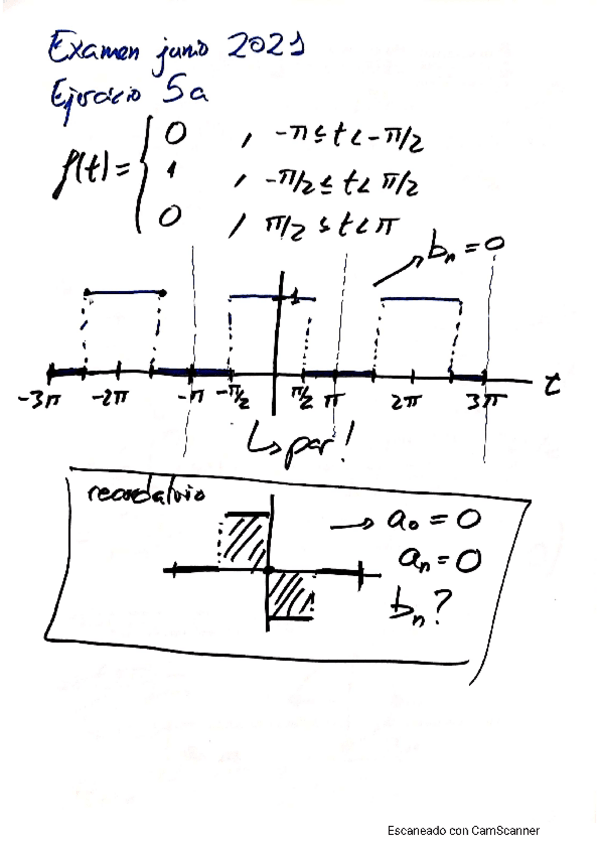 Examen junio 2021
Ejercicio 5a
f(t) = { 0 , -π ≤ t < -π/2
1 , -π/2 ≤ t < π/2
0 , π/2 ≤ t < π
→ bₙ = 0
1
-3π -2π -π -π/2 π/2 π 2π 3π t
↳ par!
recordatorio
→ a₀ = 0
aₙ = 0
bₙ?
Escaneado con CamScanner